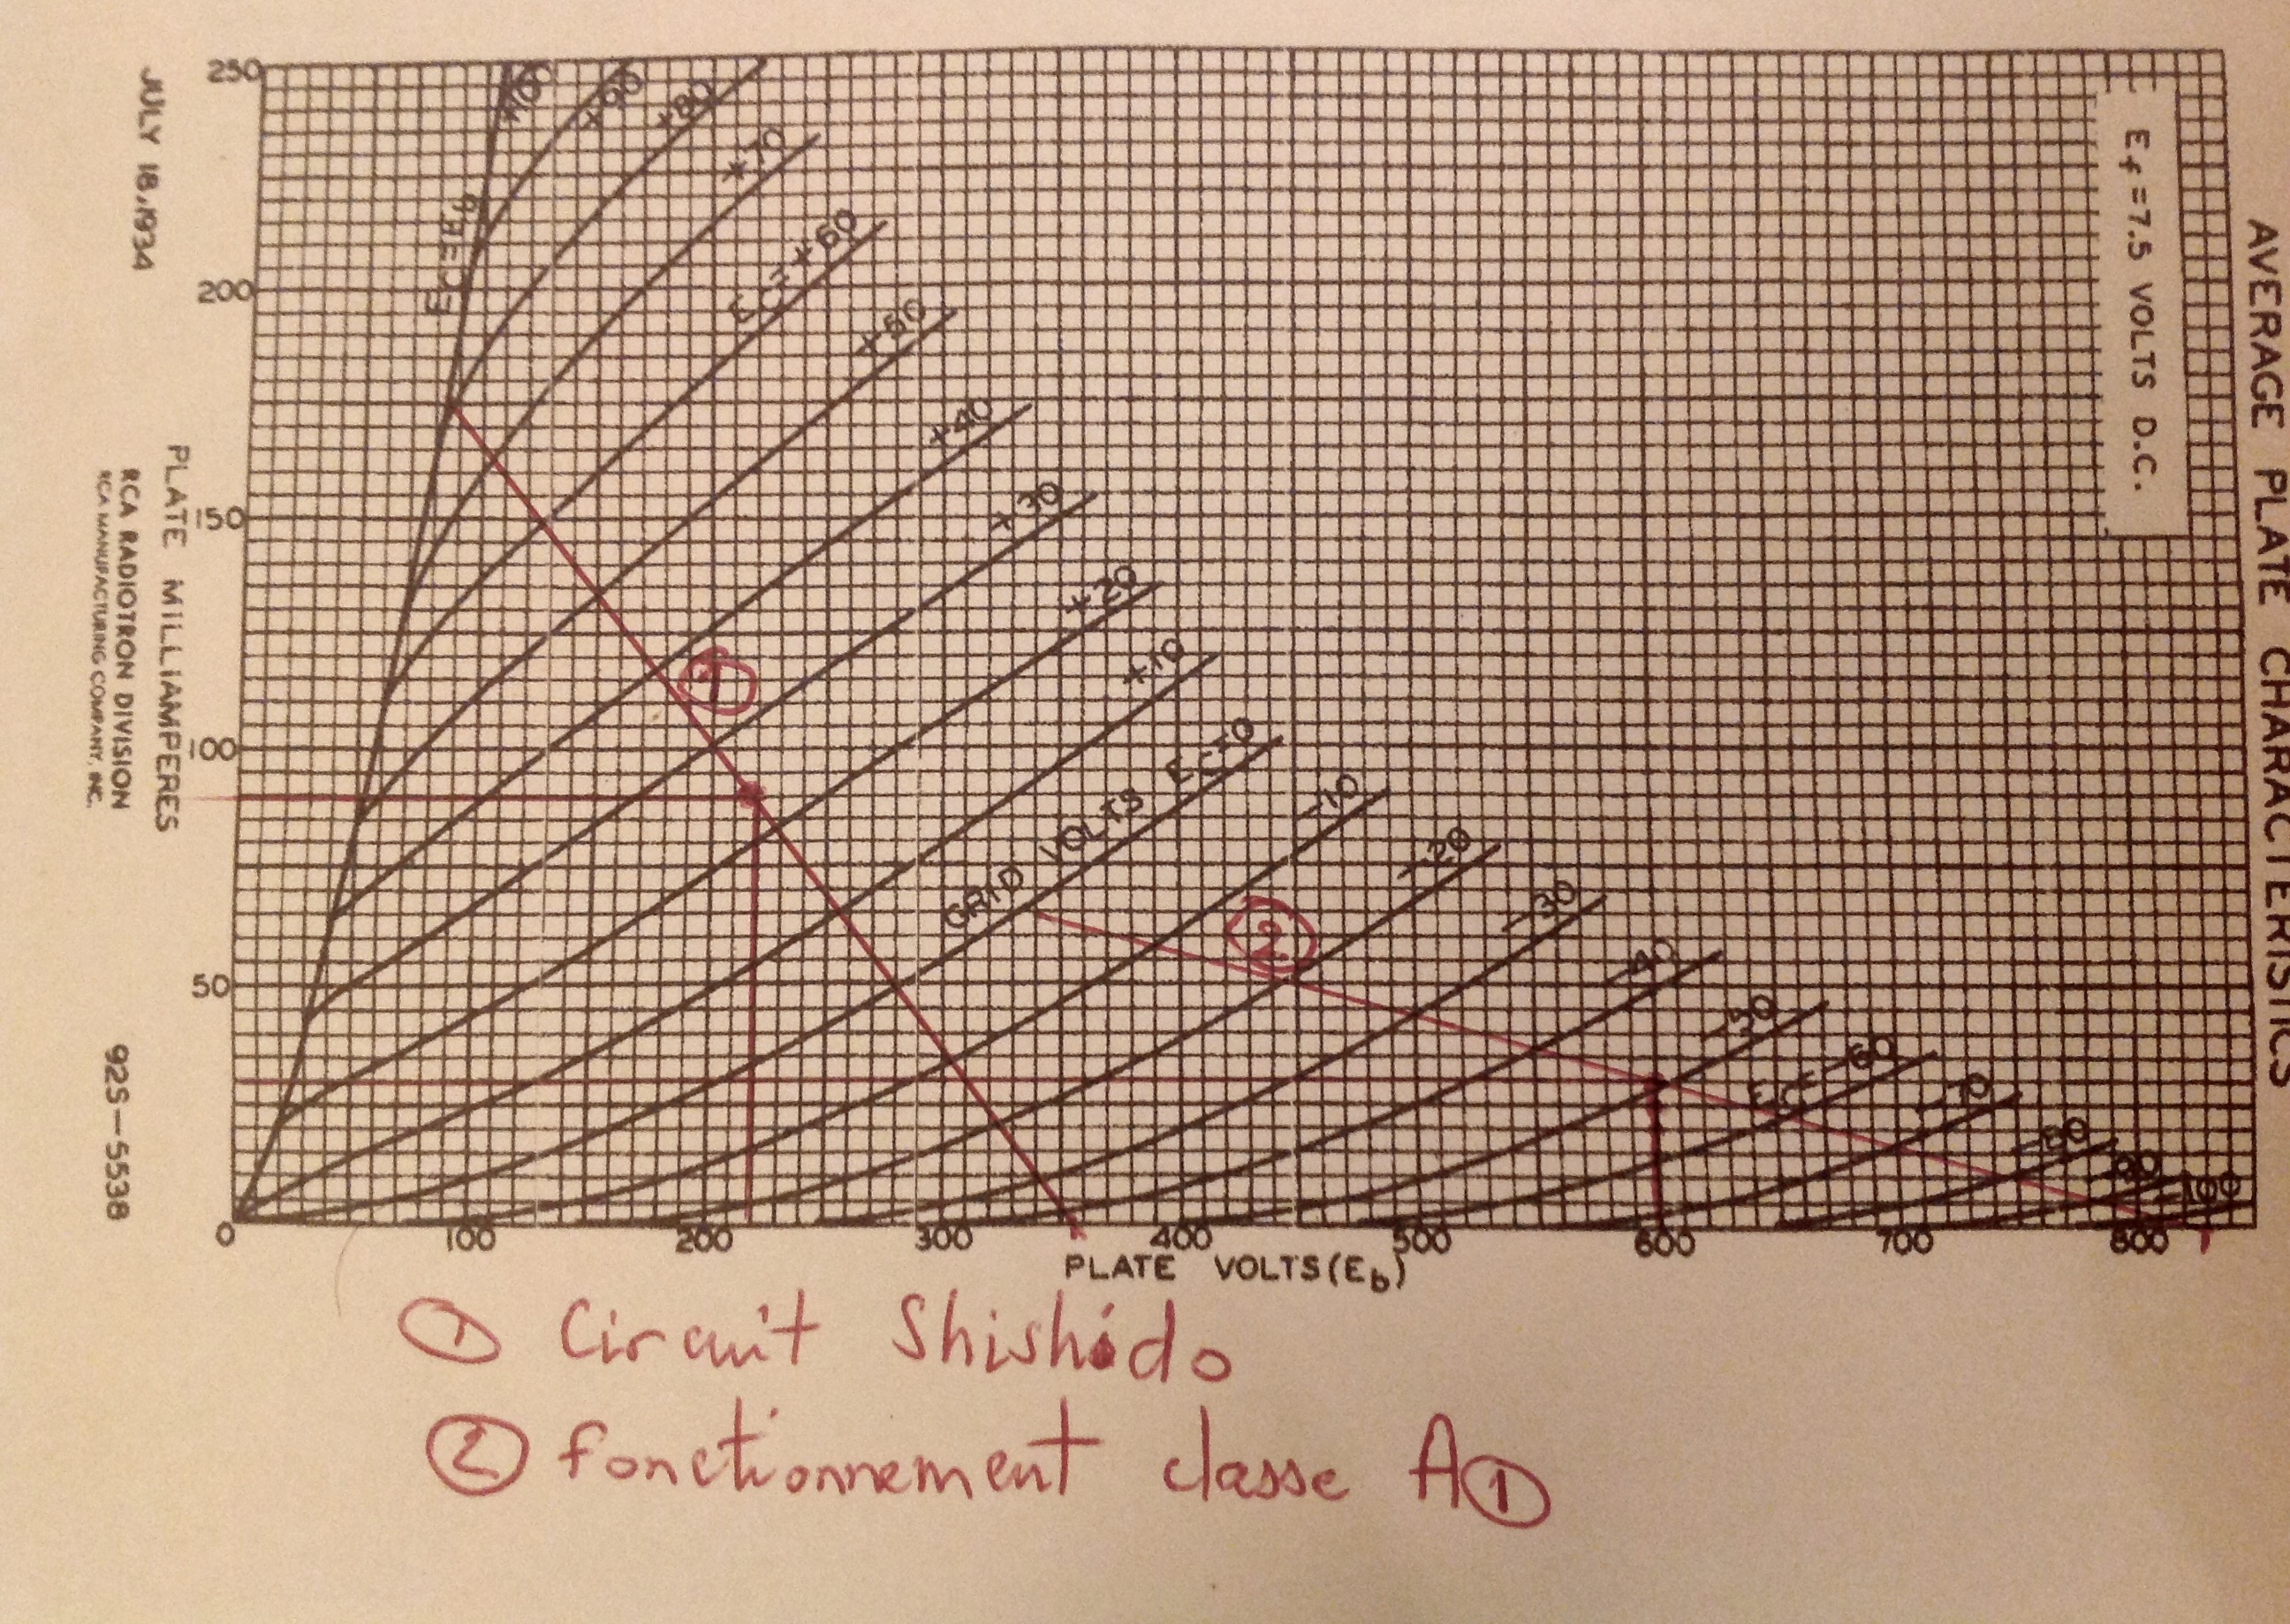 AVERAGE PLATE CHARACTERISTICS
E_f = 7.5 VOLTS D.C.
250
200
150
100
50
0
100
200
300
400
500
600
700
800
PLATE VOLTS (E_b)
PLATE MILLIAMPERES
JULY 18, 1934
RCA RADIOTRON DIVISION
RCA MANUFACTURING COMPANY, INC.
92S-5538
+90
+80
+70
EC=+60
+50
+40
+30
+20
+10
GRID VOLTS EC=0
-10
-20
-30
-40
-50
EC=-60
-70
-80
-90
-100
②
① Circuit Shishido
② fonctionnement classe A①